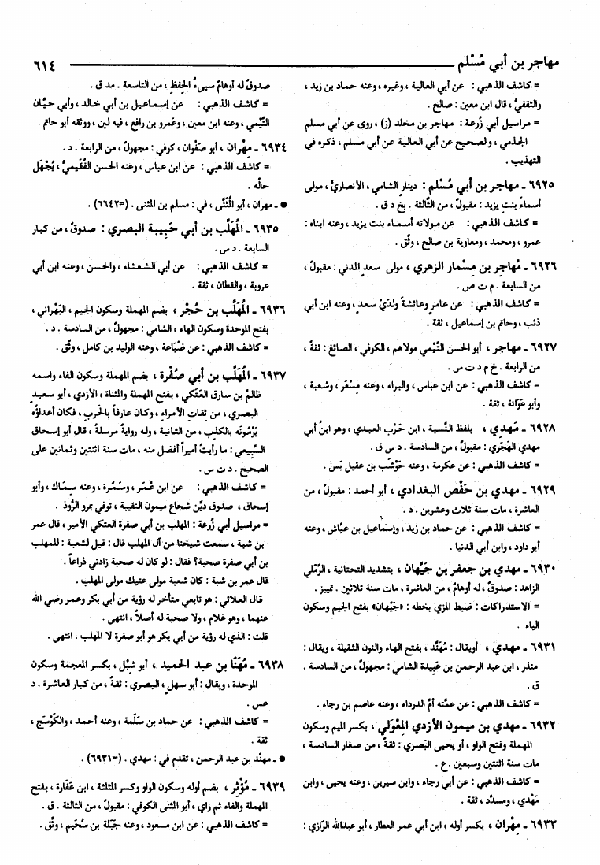 مهاجر بن أبي مُسْلم
٦١٤
= كاشف الذهبي: عن أبي العالية، وغيره، وعنه حماد بن زيد،
والثقفيُّ، قال ابن معين: صالح.
= مراسيل أبي زُرعة: مهاجر بن مخلد (ز)، روى عن أبي مسلم
الجذمي، والصحيح عن أبي العالية عن أبي مسلم، ذكره في
التهذيب.
٦٩٢٥ ـ مهاجر بن أبي مُسْلم: دينار الشامي، الأنصاريُّ، مولى
أسماءَ بنتِ يزيد: مقبولٌ، من الثالثة. بخ د ق.
= كاشف الذهبي: عن مولاته أسماء بنت يزيد، وعنه ابناه:
عمرو، ومحمد، ومعاوية بن صالح، وثق.
٦٩٢٦ ـ مُهاجر بن مِسْمار الزهري، مولى سعد المدني: مقبولٌ،
من السابعة. م ت ص.
= كاشف الذهبي: عن عامرٍ وعائشةَ ولدَيْ سعدٍ، وعنه ابن أبي
ذئب، وحاتم بن إسماعيل، ثقة.
٦٩٢٧ ـ مهاجر، أبو الحسن التَّيْمي مولاهم، الكوفي، الصائغ: ثقةٌ،
من الرابعة. خ م د ت س.
= كاشف الذهبي: عن ابن عباس، والبراء، وعنه مِسْعَر، وشعبة،
وأبو عَوَانة، ثقة.
٦٩٢٨ ـ مَهْدي، بلفظ النسبة، ابن حَرْب العبدي، وهو ابن أبي
مهدي الهَجَري: مقبولٌ، من السادسة. د س ق.
= كاشف الذهبي: عن عكرمة، وعنه حَوْشَب بن عقيل بَس.
٦٩٢٩ ـ مهدي بن حَفْص البغدادي، أبو أحمد: مقبولٌ، من
العاشرة، مات سنة ثلاث وعشرين. د.
= كاشف الذهبي: عن حماد بن زيد، وإسماعيل بن عيَّاش، وعنه
أبو داود، وابن أبي الدنيا.
٦٩٣٠ ـ مهدي بن جعفر بن جَيْهان، بتشديد التحتانية، الرَّملي
الزاهد: صدوقٌ، له أوهامٌ، من العاشرة، مات سنة ثلاثين. تمييز.
= الاستدراكات: ضبط المزي بخطه: «جَيْهان» بفتح الجيم وسكون
الياء.
٦٩٣١ ـ مهدي، أويقال: مُهنَّد، بفتح الهاء والنون الثقيلة، ويقال:
منذر، ابن عبد الرحمن بن عُبيدة الشامي: مجهولٌ، من السادسة.
ق.
= كاشف الذهبي: عن عمَّته أمّ الدرداء، وعنه عاصم بن رجاء.
٦٩٣٢ ـ مهدي بن ميمون الأزدي المِعْوَلي، بكسر الميم وسكون
المهملة وفتح الواو، أبو يحيى البَصري: ثقةٌ، من صغار السادسة،
مات سنة اثنتين وسبعين. ع.
= كاشف الذهبي: عن أبي رجاء، وابن سيرين، وعنه يحيى، وابن
مَهْدي، ومسدّد، ثقة.
٦٩٣٣ ـ مِهْران، بكسر أوله، ابن أبي عمر العطار، أبو عبدالله الرَّازي:
صدوقٌ له أوهامٌ سيىءُ الحفظ، من التاسعة. مد ق.
= كاشف الذهبي: عن إسماعيل بن أبي خالد، وأبي حيَّان
التَّيْمي، وعنه ابن معين، وعَمرو بن رافع، فيه لين، ووثقه أبو حاتم.
٦٩٣٤ ـ مِهْران، أبو صفوان، كوفي: مجهولٌ، من الرابعة. د.
= كاشف الذهبي: عن ابن عباس، وعنه الحسن الفُقَيْميُّ، يُجْهَل
حاله.
● ـ مهران، أبو المُثَنَّى، في: مسلم بن المثنى. (=٦٦٤٢).
٦٩٣٥ ـ المُهَلَّب بن أبي حَبِيبة البصري: صدوقٌ، من كبار
السابعة. د س.
= كاشف الذهبي: عن أبي الشعثاء، والحسن، وعنه ابن أبي
عروبة، والقطان، ثقة.
٦٩٣٦ ـ المُهَلَّب بن حُجْر، بضم المهملة وسكون الجيم، البَهْراني،
بفتح الموحدة وسكون الهاء، الشامي: مجهولٌ، من السادسة. د.
= كاشف الذهبي: عن ضُباعة، وعنه الوليد بن كامل، وثق.
٦٩٣٧ ـ المُهَلَّب بن أبي صُفْرة، بضم المهملة وسكون الفاء واسمه
ظالم بن سارق العَتَكي، بفتح المهملة والمثناة، الأزدي، أبو سعيد
البصري، من ثقات الأمراء، وكان عارفاً بالحرب، فكان أعداؤُه
يَرْمُونَه بالكذب، من الثانية، وله روايةٌ مرسلةٌ، قال أبو إسحاق
السَّبِيعي: ما رأيتُ أميراً أفضلَ منه، مات سنة اثنتين وثمانين على
الصحيح. د ت س.
= كاشف الذهبي: عن ابن عُمر، وسَمُرة، وعنه سِماك، وأبو
إسحاق، صدوق ديِّن شجاع ميمون النقيبة، توفي بمرو الرُّوذ.
= مراسيل أبي زُرعة: المهلب بن أبي صفرة العتكي الأمير، قال عمر
بن شبة، سمعت شيخنا من آل المهلب قال: قيل لشعبة: للمهلب
بن أبي صفرة صحبة؟ فقال: لو كان له صحبة زادني ذراعاً.
قال عمر بن شبة: كان شعبة مولى عتيك مولى المهلب.
قال العلائي: هو تابعي متأخر له رؤية من أبي بكر وعمر رضي الله
عنهما، وهو غلام، ولا صحبة له أصلاً، انتهى.
قلت: الذي له رؤية من أبي بكر هو أبو صفرة لا المهلب، انتهى.
٦٩٣٨ ـ مُهَنَّا بن عبد الحميد، أبو شِبْل، بكسر المعجمة وسكون
الموحدة، ويقال: أبو سهل، البصري: ثقةٌ، من كبار العاشرة. د
عس.
= كاشف الذهبي: عن حماد بن سَلَمة، وعنه أحمد، والكَوْسَج،
ثقة.
● ـ مهنّد بن عبد الرحمن، تقدم في: مهدي. (=٦٩٣١).
٦٩٣٩ ـ مُؤْثِر، بضم أوله وسكون الواو وكسر المثلثة، ابن عَفَازة، بفتح
المهملة والفاء ثم زاي، أبو المثنى الكوفي: مقبولٌ، من الثالثة. ق.
= كاشف الذهبي: عن ابن مسعود، وعنه جَبَلة بن سُحَيم، وثق.